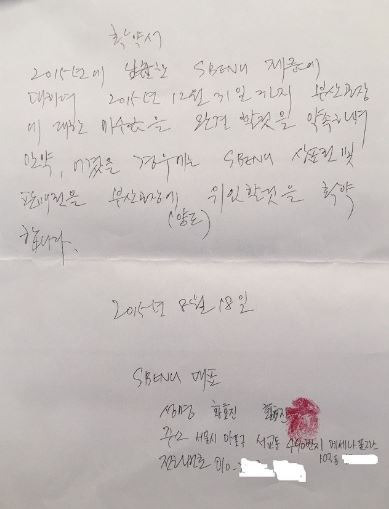 확약서
2015년에 납품한 SBENU 제품에
대하여 2015년 12월 31일 까지 부산공장
에 대한 미수금을 완결 할것을 약속하며
만약, 어겼을 경우에는 SBENU 상표권 및
판매권을 부산공장에 위임할것을 확약
(양도)
합니다.
2015년 8월 18일
SBENU 대표
성명 황효진 황효진
주소 서울시 마포구 서교동 490번지 메세나폴리스
전화번호 010. 102동